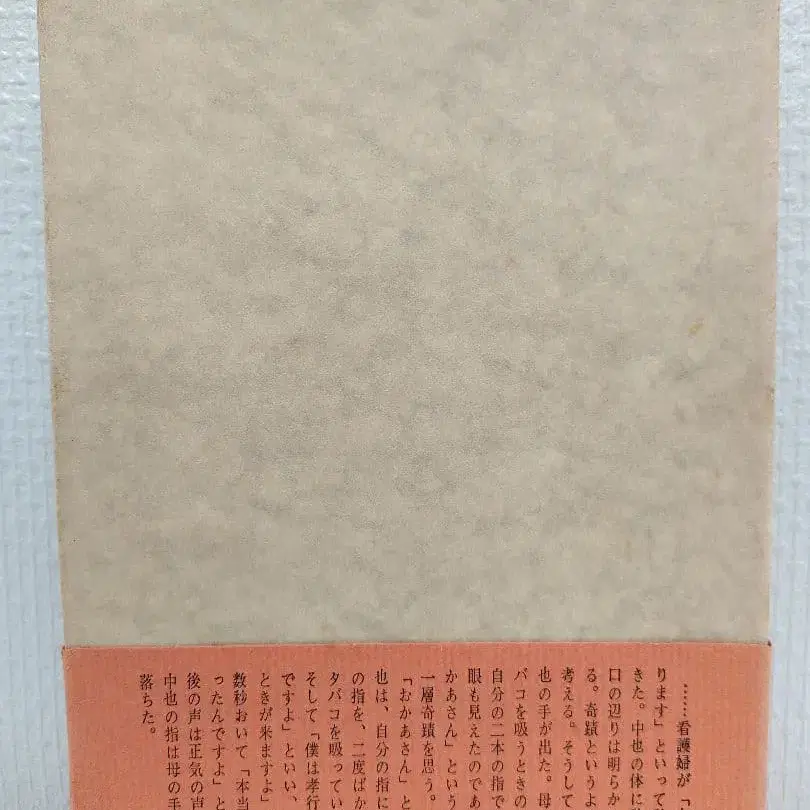 ……看護婦が「
ります」といって
きた。中也の体に
口の辺りは明らか
る。奇蹟というよ
考える。そうして
也の手が出た。母
バコを吸うときの
自分の二本の指で
眼も見えたのであ
かあさん」という
一層奇蹟を思う。
「おかあさん」と
也は、自分の指に
の指を、二度ばか
タバコを吸ってい
そして「僕は孝行
ですよ」といい、
ときが来ますよ」
数秒おいて「本当
ったんですよ」と
後の声は正気の声
中也の指は母の手
落ちた。